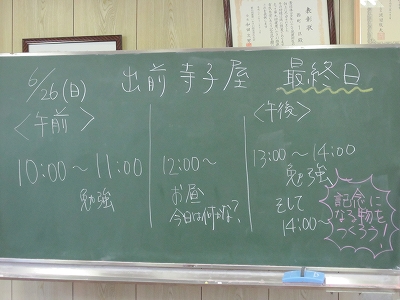 6/26(日) 出前寺子屋 最終日
〈午前〉
10:00〜11:00
勉強
12:00〜
お昼
今日は何かな?
〈午後〉
13:00〜14:00
勉強
そして
14:00〜
記念に
なる物を
つくろう!
表彰状